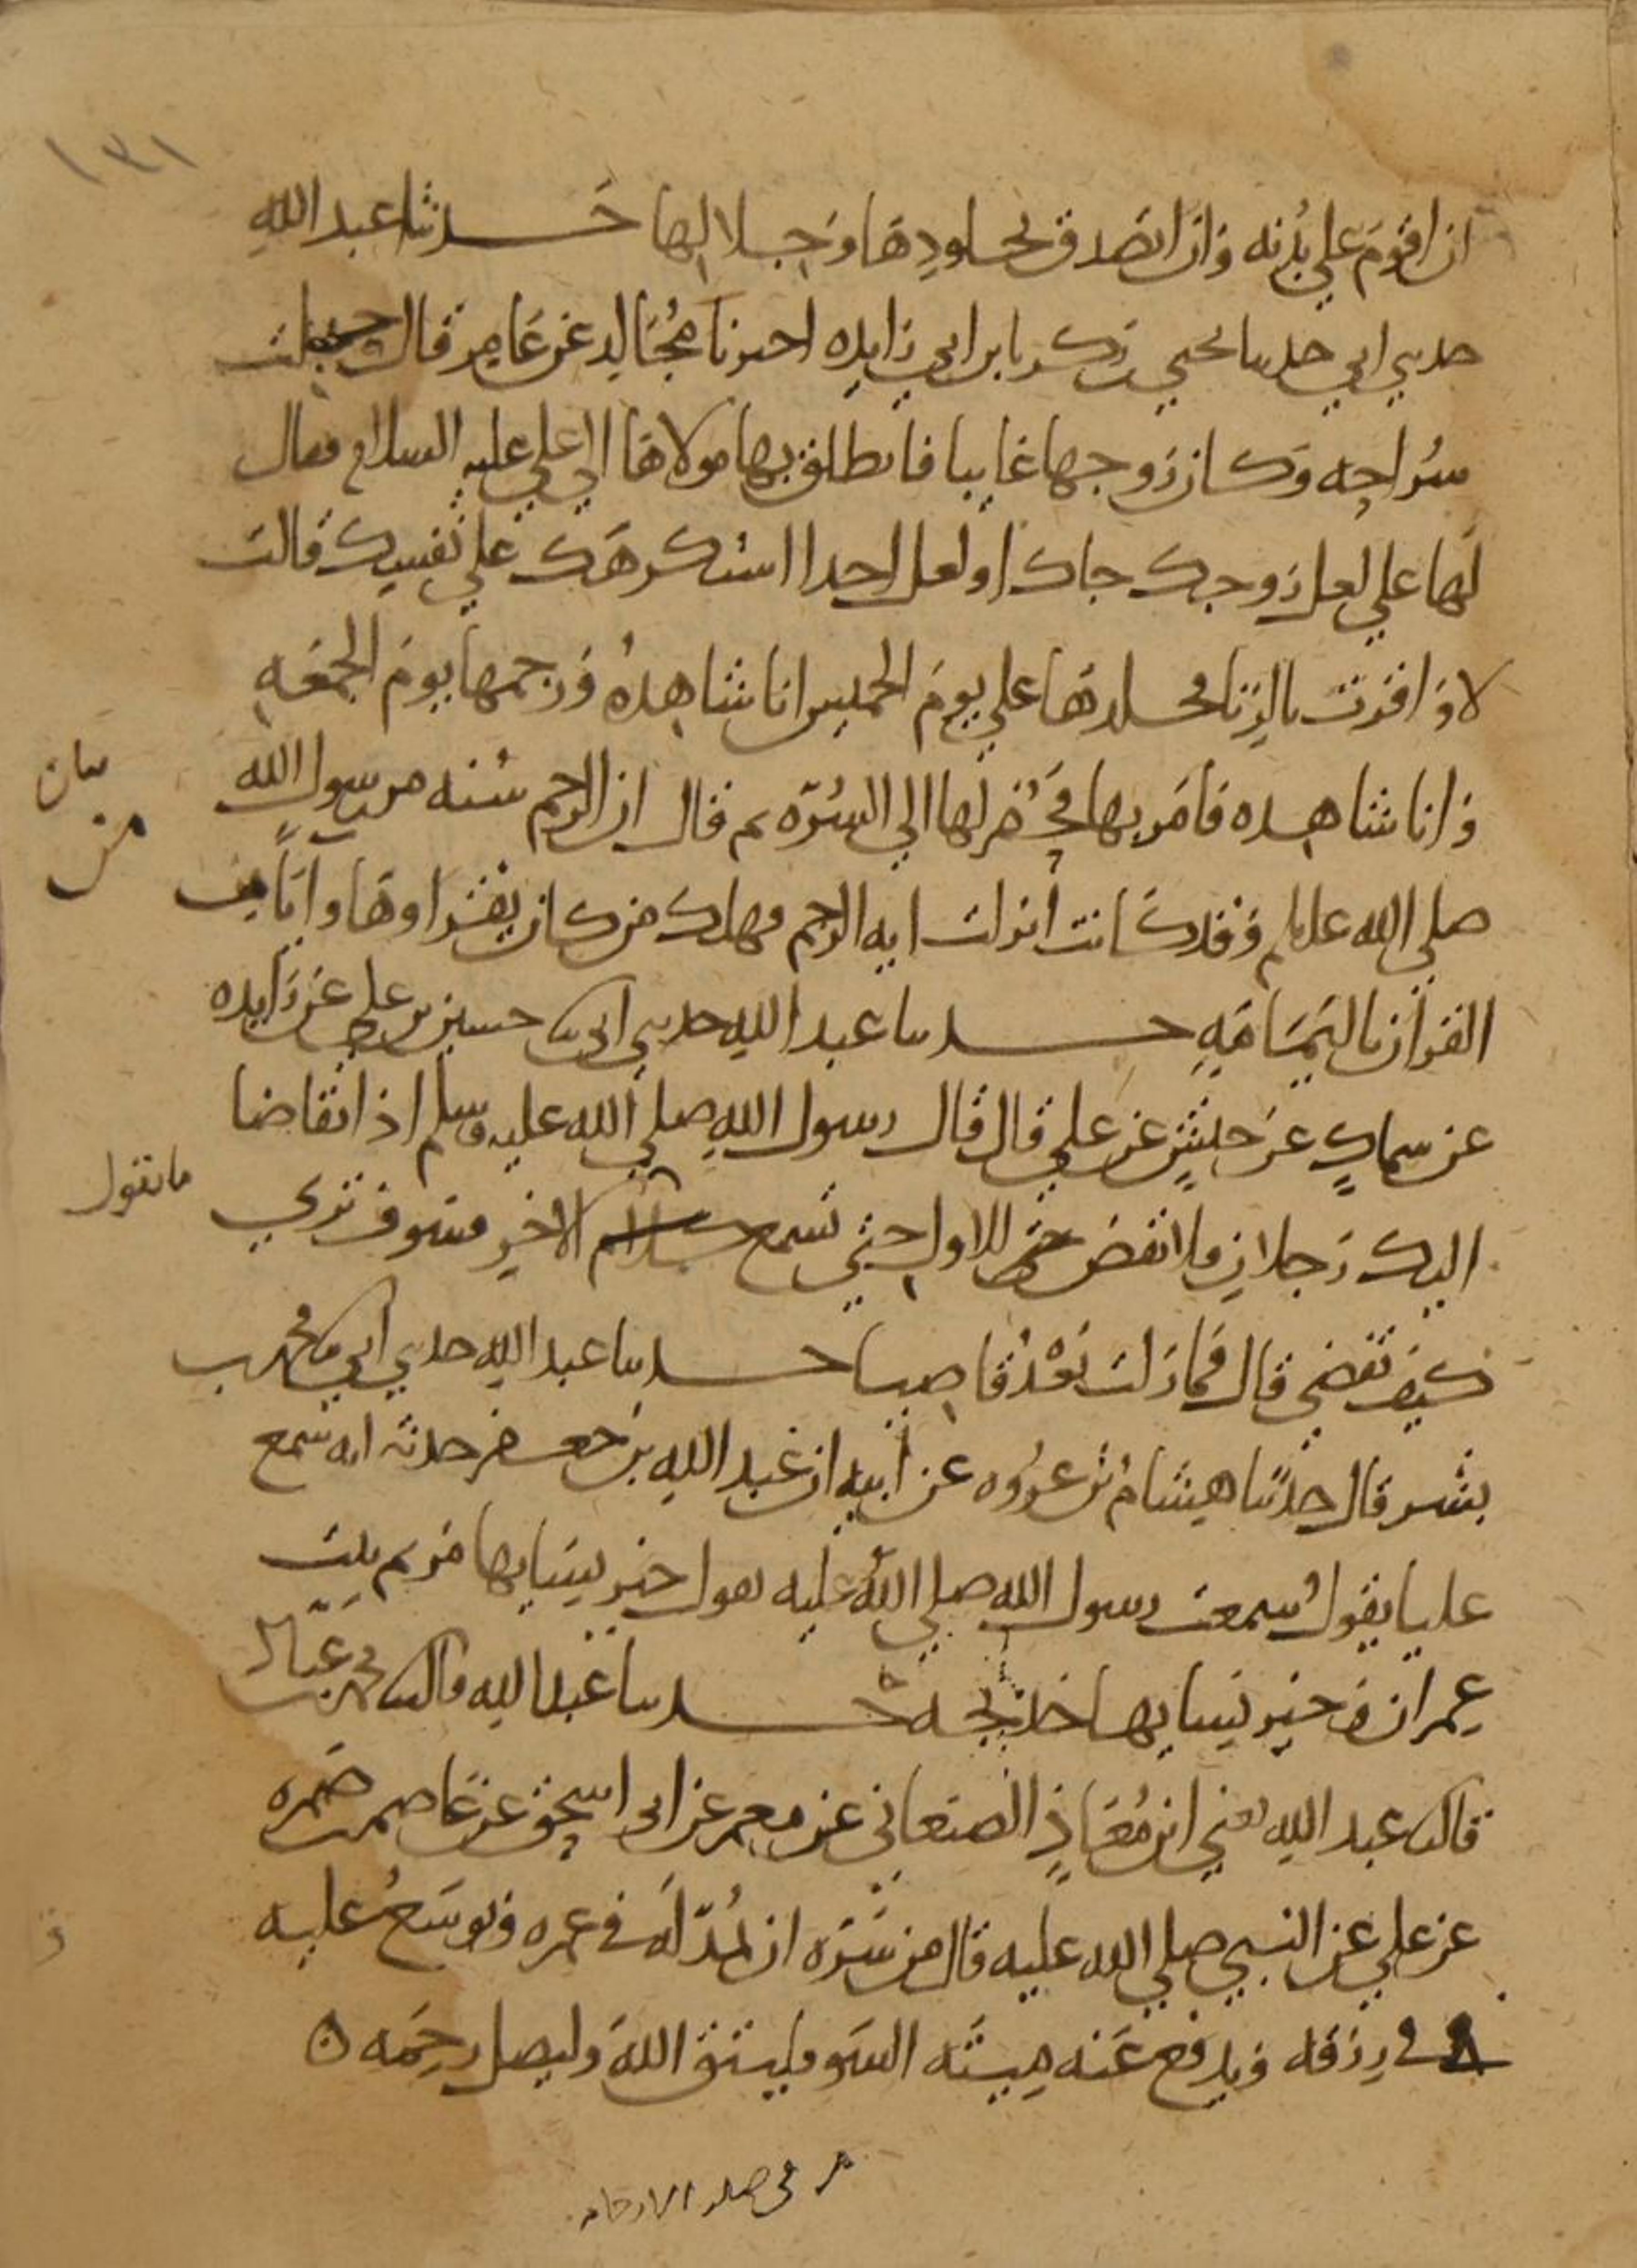 ١٣١
ان اقوم على بدنه وان اتصدق بجلودها وجلالها حدثنا عبد الله
حدثني ابي حدثنا يحيى بن زكريا بن ابي زايده اخبرنا مجالد عن عامر قال حملت
شراحه وكان زوجها غايبا فانطلق بها مولاها الى علي عليه السلام فقال
لها علي لعل زوجك جاك او لعل احدا استكرهك على نفسك قالت
لا واقرت بالزنا فجلدها علي يوم الخميس انا شاهده ورجمها يوم الجمعه
وانا شاهده فامر بها فحفر لها الى السره ثم قال ان الرجم سنه من رسول الله
بيان
من
صلى الله عليه وسلم وقد كانت انزلت ايه الرجم فهلك من كان يقراوها وايا من
القران باليمامه حدثنا عبد الله حدثني ابي ثنا حسين بن علي عن زايده
عن سماك عن حنش عن علي قال قال رسول الله صلى الله عليه وسلم اذا تقاضا
اليك رجلان فلا تقض للاول حتى تسمع الاخر فسوف ترى
ما يقول
كيف تقضي قال فما زلت بعد قاضيا حدثنا عبد الله حدثني ابي ثنا محمد بن
بشر قال حدثنا هشام بن عروه عن ابيه ان عبد الله بن جعفر حدثه انه سمع
عليا يقول سمعت رسول الله صلى الله عليه يقول خير نسايها مريم بنت
عمران وخير نسايها خديجه حدثنا عبد الله قال ثنا محمد بن عباد
قال ثنا عبد الله يعني ابن معاذ الصنعاني عن معمر عن ابي اسحق عن عاصم بن ضمره
عن علي عن النبي صلى الله عليه قال من سره ان يمد له في عمره ويوسع عليه
في رزقه ويدفع عنه ميته السو فليتق الله وليصل رحمه ه
في صله الارحام